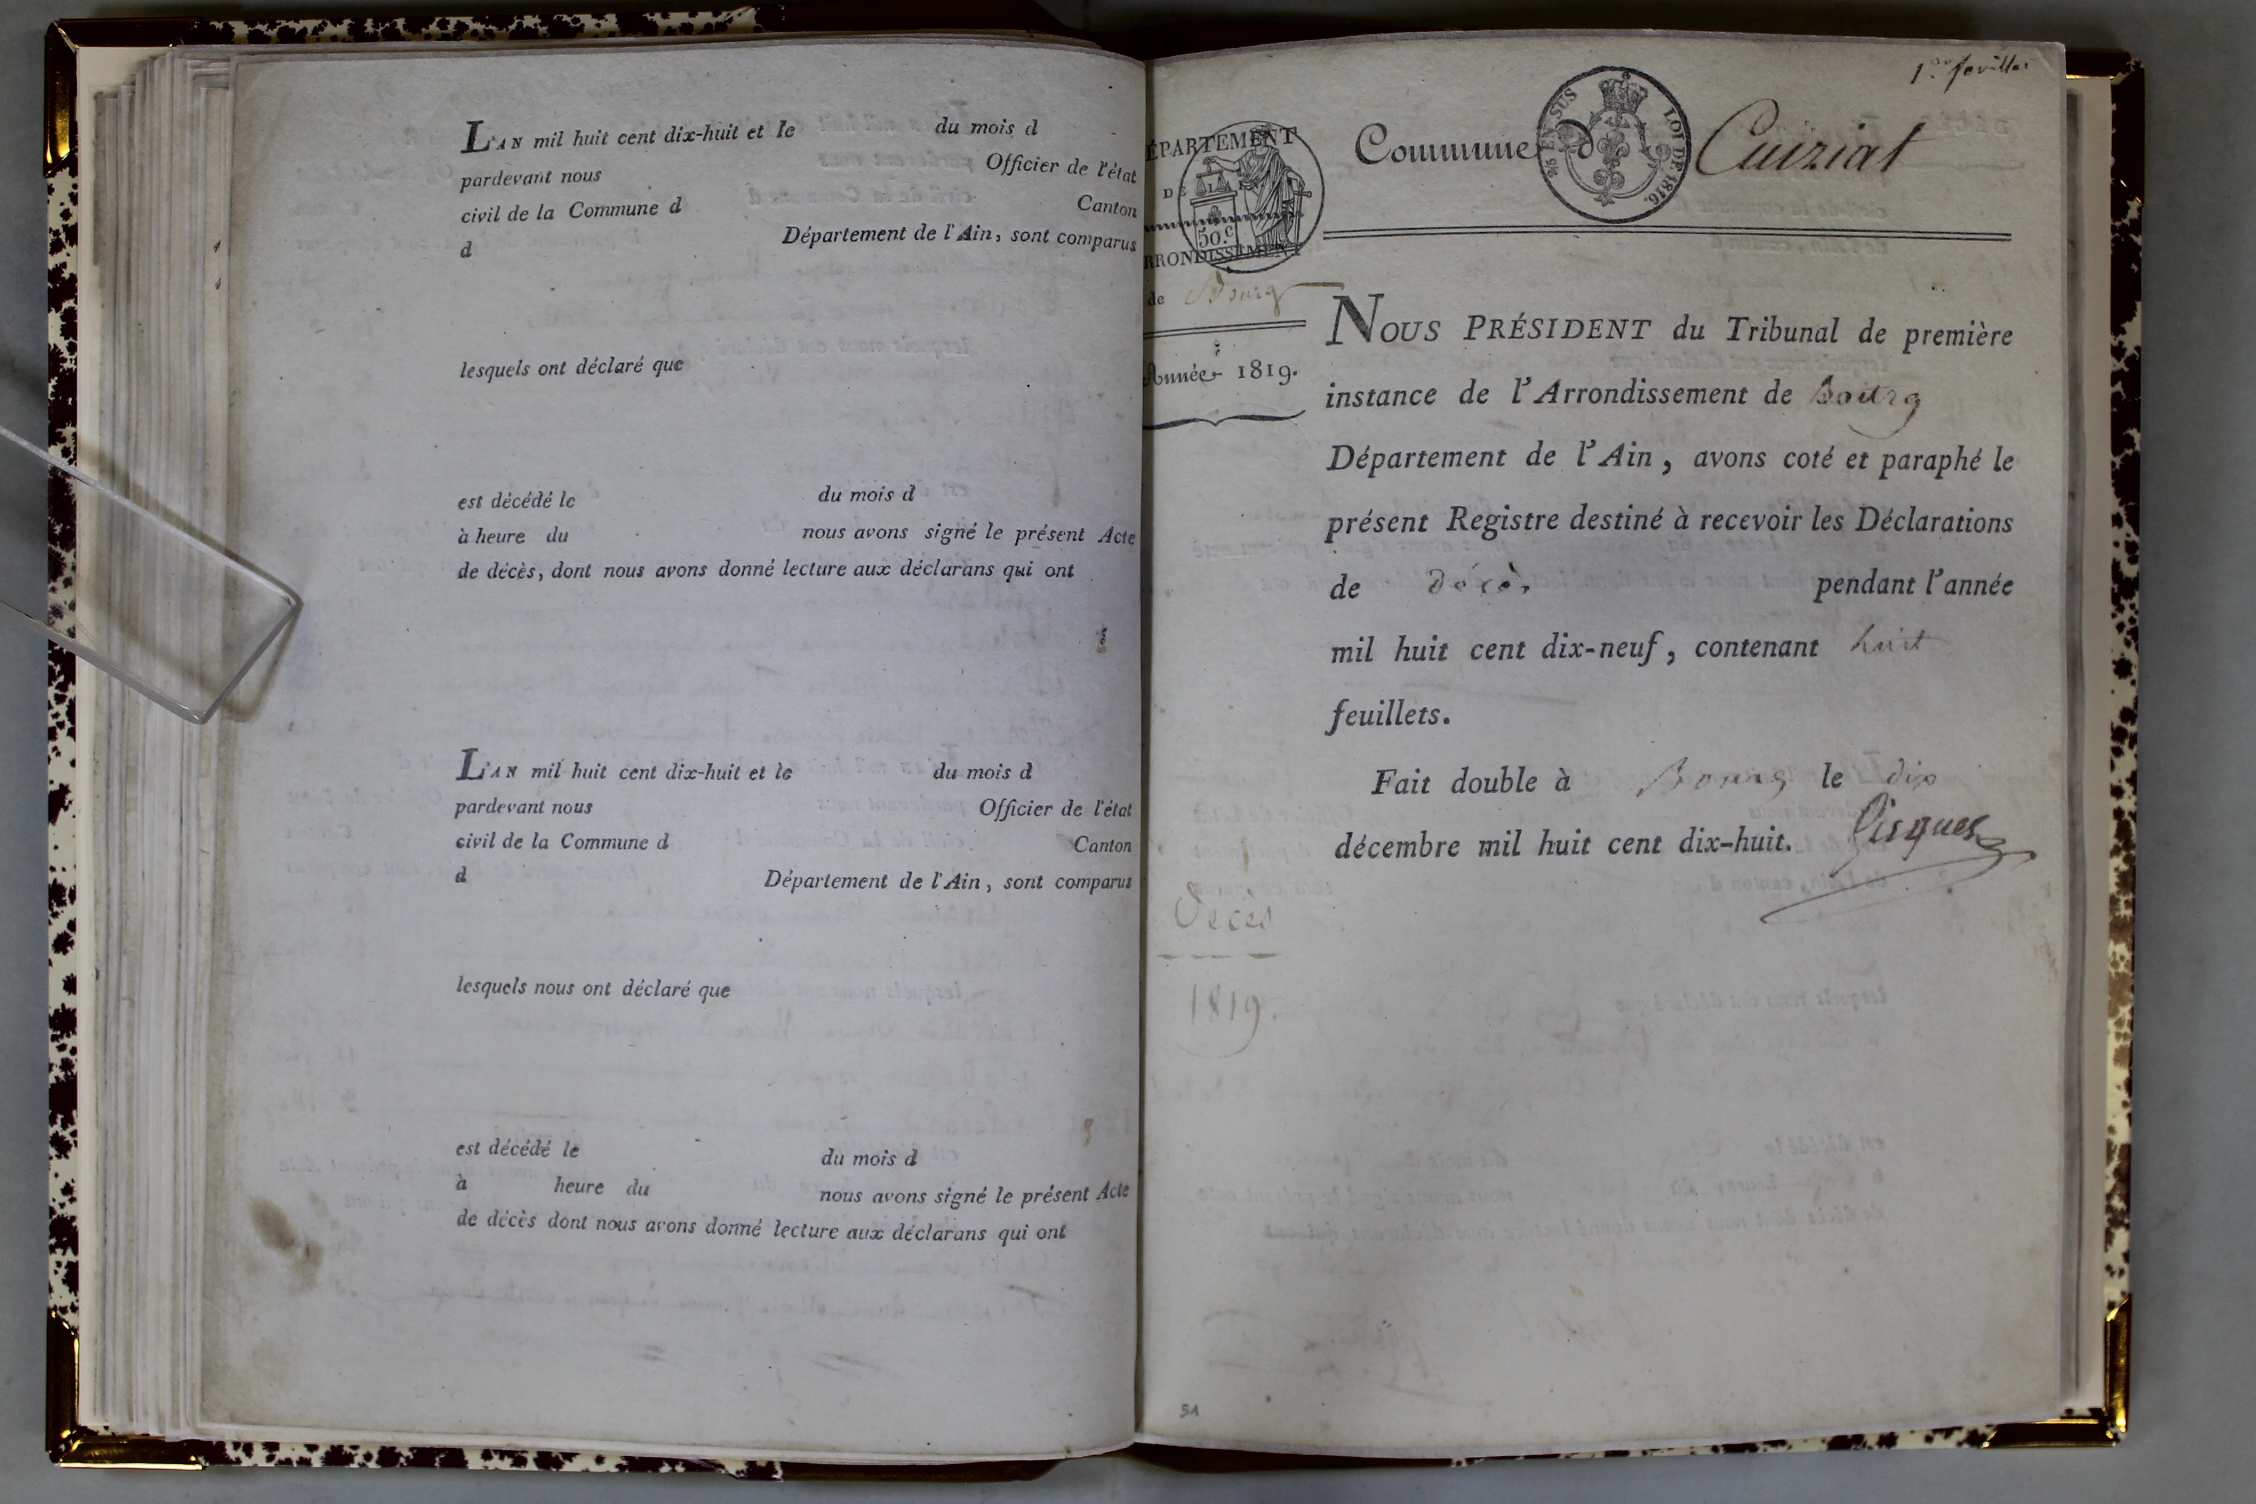 L'AN mil huit cent dix-huit et le du mois d
pardevant nous Officier de l'état
civil de la Commune d Canton
d Département de l'Ain, sont comparus
lesquels ont déclaré que
est décédé le du mois d
à heure du nous avons signé le présent Acte
de décès, dont nous avons donné lecture aux déclarans qui ont
L'AN mil huit cent dix-huit et le du mois d
pardevant nous Officier de l'état
civil de la Commune d
Canton
d Département de l'Ain, sont comparus
lesquels nous ont déclaré que
est décédé le du mois d
à heure du nous avons signé le présent Acte
de décès dont nous avons donné lecture aux déclarans qui ont
1er feuillet
ÉPARTEMENT
DE
50.c
RRONDISSEMENT
de Bourg
Année 1819.
Commune d Cuiziat
EN SUS LOI DE 1816.
NOUS PRÉSIDENT du Tribunal de première
instance de l'Arrondissement de Bourg
Département de l'Ain, avons coté et paraphé le
présent Registre destiné à recevoir les Déclarations
de décès pendant l'année
mil huit cent dix-neuf, contenant huit
feuillets.
Fait double à Bourg le dix
décembre mil huit cent dix-huit.
Décès
1819.
51